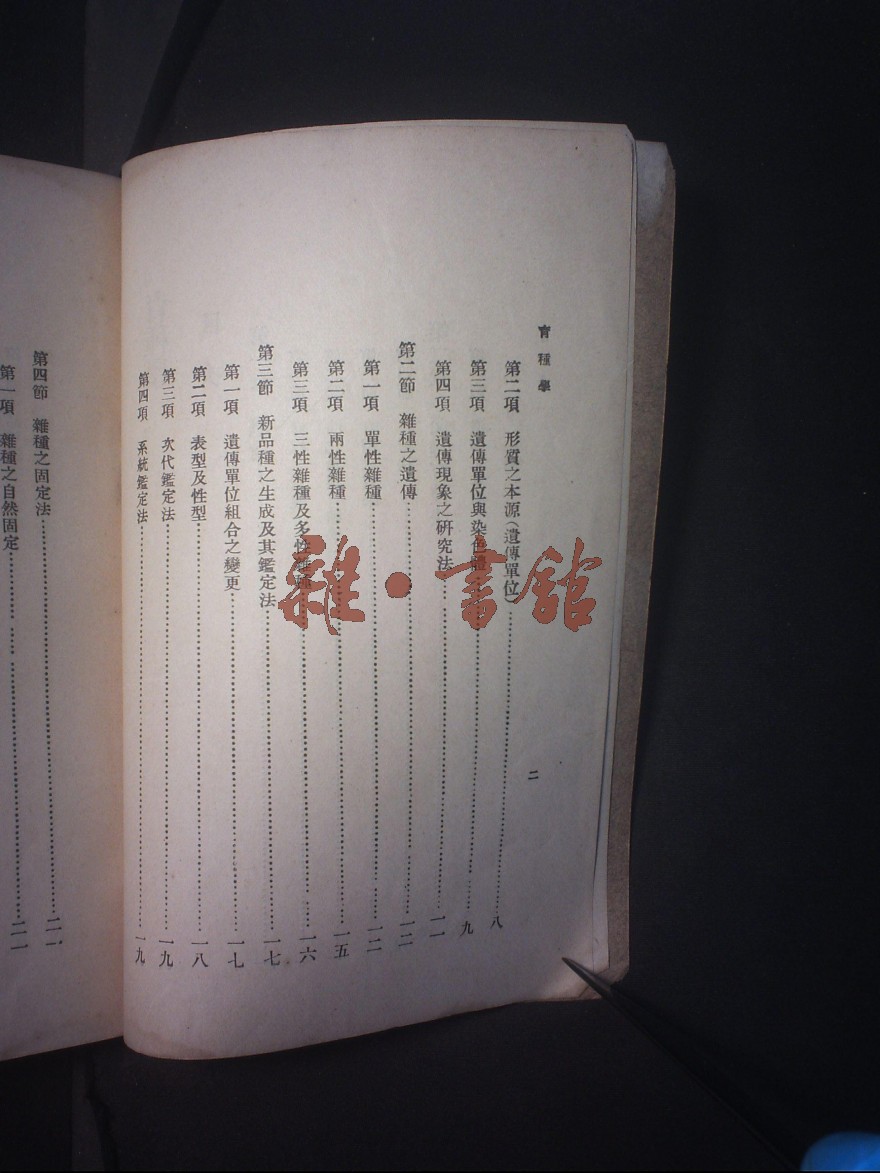 育種學
二
第二項 形質之本源（遺傳單位）……八
第三項 遺傳單位與染色體……九
第四項 遺傳現象之研究法……一一
第二節 雜種之遺傳……一二
第一項 單性雜種……一二
第二項 兩性雜種……一五
第三項 三性雜種及多性雜種……一六
第三節 新品種之生成及其鑑定法……一七
第一項 遺傳單位組合之變更……一七
第二項 表型及性型……一八
第三項 次代鑑定法……一九
第四項 系統鑑定法……一九
第四節 雜種之固定法……二一
第一項 雜種之自然固定……二一
雜·書館